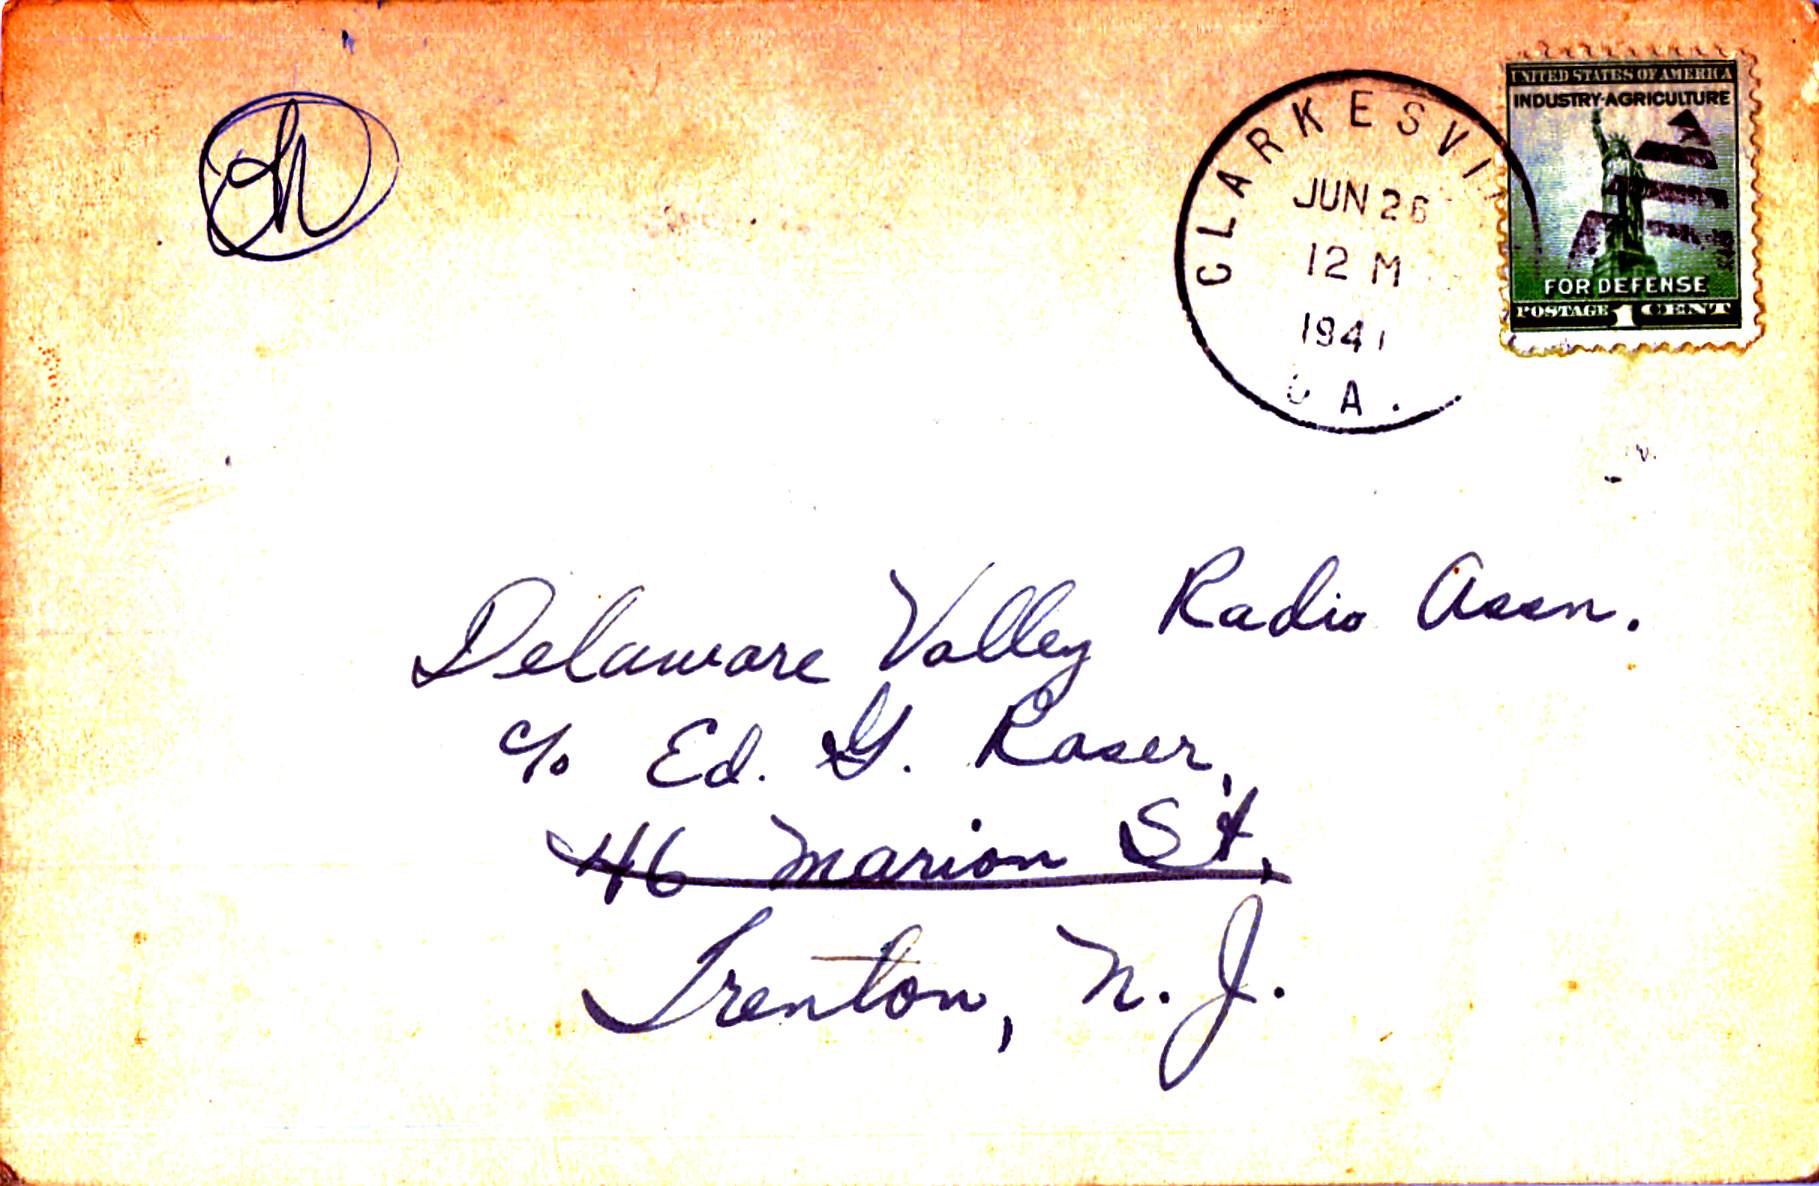 UNITED STATES OF AMERICA
INDUSTRY-AGRICULTURE
FOR DEFENSE
POSTAGE 1 CENT
CLARKESVI
JUN 26
12 M
1941
A.
Delaware Valley Radio Assn.
c/o Ed. G. Raser,
46 Marion St,
Trenton, N. J.